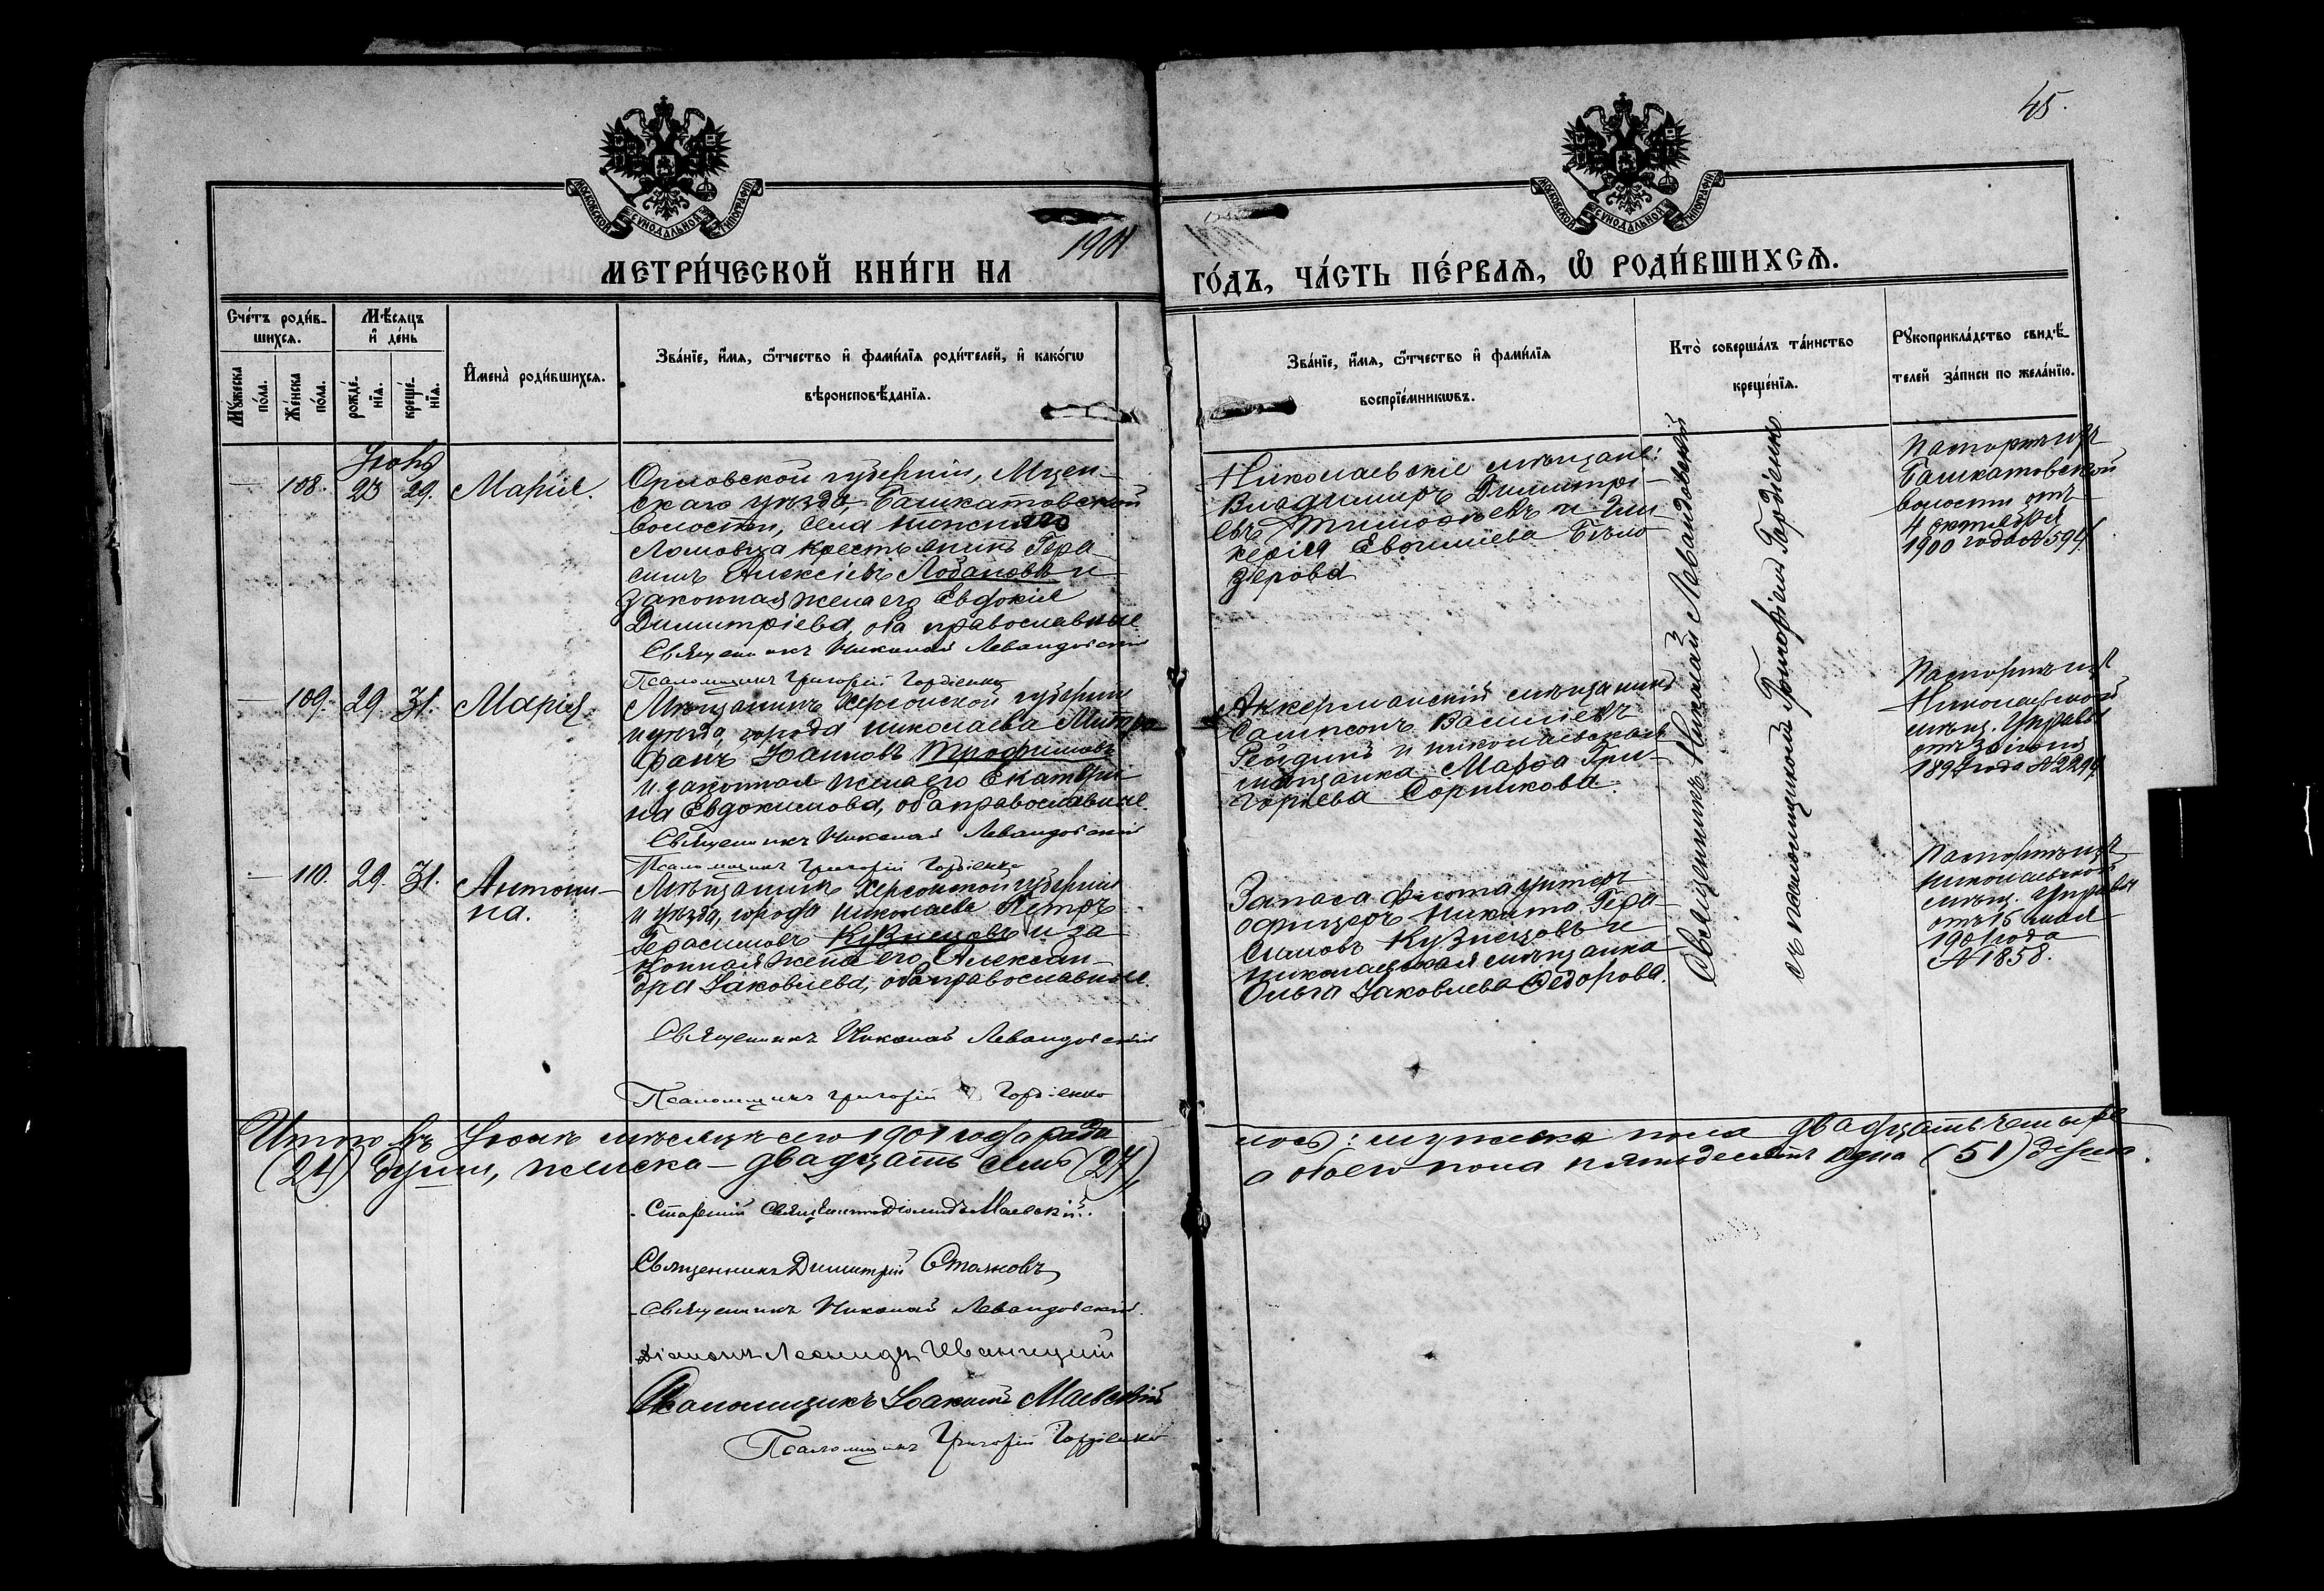 45.
МОСКОВСКОЙ СУНОДАЛЬНОЙ ТИПОГРАФІИ
МОСКОВСКОЙ СУНОДАЛЬНОЙ ТИПОГРАФІИ
МЕТРИ́ЧЕСКОЙ КНИ́ГИ НА 1901
ГО́ДЪ, ЧА́СТЬ ПЕ́РВАѦ, Ѡ РОДИ́ВШИХСѦ.
Сче́тъ роди́в-
шихсѧ.
Мꙋ́жеска по́ла.
Же́нска по́ла.
Мѣ́сѧцъ
и҆ де́нь
рожде́-
нїѧ.
креще́-
нїѧ.
И҆мена̀ роди́вшихсѧ.
Зва́нїе, и҆́мѧ, ѻ҆́тчество и҆ фами́лїѧ роди́телей, и҆ како́гѡ
вѣроисповѣ́данїѧ.
Зва́нїе, и҆́мѧ, ѻ҆́тчество и҆ фами́лїѧ
воспрїе́мникѡвъ.
Кто̀ соверша́лъ та́инство
креще́нїѧ.
Рꙋкоприкла́дство свидѣ́-
телей за́писи по жела́нїю.
108. 23 29. Марія.
Орловской губерніи, Мцен-
скаго уѣзда, Башкатовской
волости, села
Ломовца крестьянинъ Гера-
симъ Алексіевъ Лобановъ и
законная жена его Евдокія
Димитріева, оба православные
Священникъ Николай Левандовскій
Псаломщикъ Григорій Гордіенко
Николаевскіе мѣщане:
Владимиръ Димитрі-
евъ Тимофѣевъ и Гли-
керія Евфиміева Бѣло-
зерова
Паспортъ
Башкатовской
волости отъ
4 октября
1900 года № 594.
109. 29 31. Марія
Мѣщанинъ Херсонской губерніи
и уѣзда, города Николаева Митро-
фанъ Іоанновъ Трофимовъ
и законная жена его Екатери-
на Евдокимова, оба православные.
Священникъ Николай Левандовскій
Псаломщикъ Григорій Гордіенко
Аккерманскій мѣщанинъ
Сампсонъ Васильевъ
и николаевская
мѣщанка Марфа Гри-
горьева Сорникова.
Паспортъ
Николаевской
мѣщ. Управы
отъ
110. 29. 31. Антони-
на.
Мѣщанинъ Херсонской губерніи
и уѣзда, города Николаева Петръ
Герасимовъ Кузнецовъ и за-
конная жена его Алексан-
дра Іаковлева, оба православные.
Священникъ Николай Левандовскій
Псаломщикъ Григорій Гордіенко
Запаса флота унтеръ
офицеръ Никита Гера-
симовъ Кузнецовъ и
николаевская мѣщанка
Ольга Іаковлева Федорова.
Паспортъ
Николаевской
мѣщ. Управы
отъ 15 мая
1901 года
№ 1858.
Священникъ Николай Левандовскій
съ псаломщикомъ Григоріемъ Гордіенко
Итого въ мѣсяцѣ сего 1901 года роди-
лось: мужеска пола двадцать четыре
(24) души, женска - двадцать семь (27),
а обоего пола пятьдесятъ одна (51) душа.
Старшій Священникъ Маевскій.
Священникъ Димитрій Стояновъ
Священникъ Николай Левандовскій.
Діаконъ Леонидъ Иваницкій
Псаломщикъ Іоакимъ Маевскій
Псаломщикъ Григорій Гордіенко